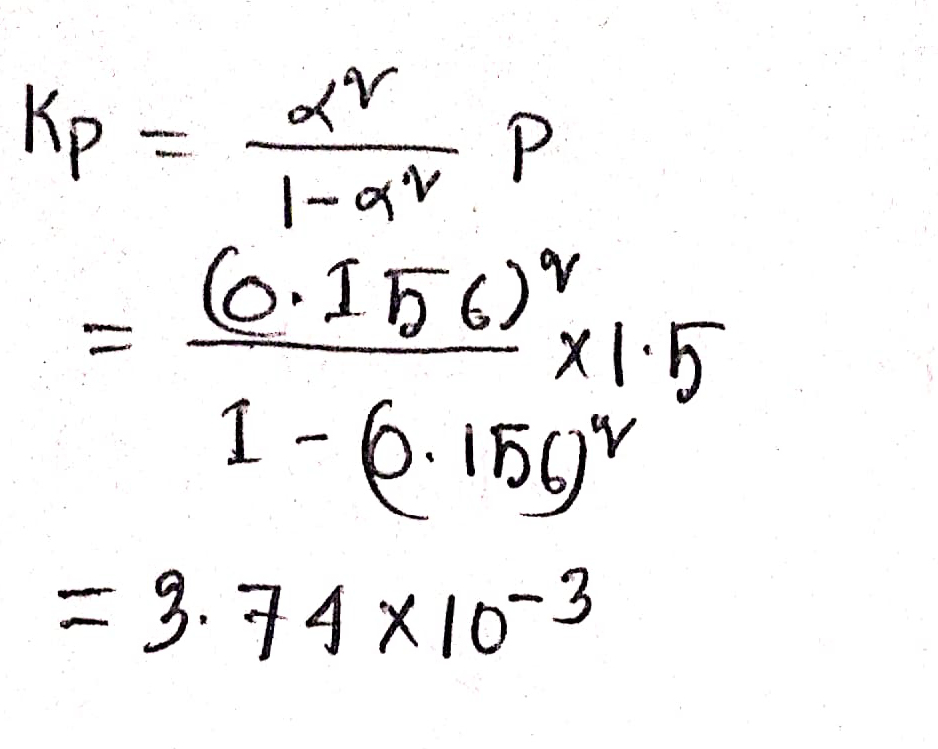 Kp = α² / 1-α² P
= (0.156)² / 1-(0.156)² ×1.5
= 3.74×10⁻³